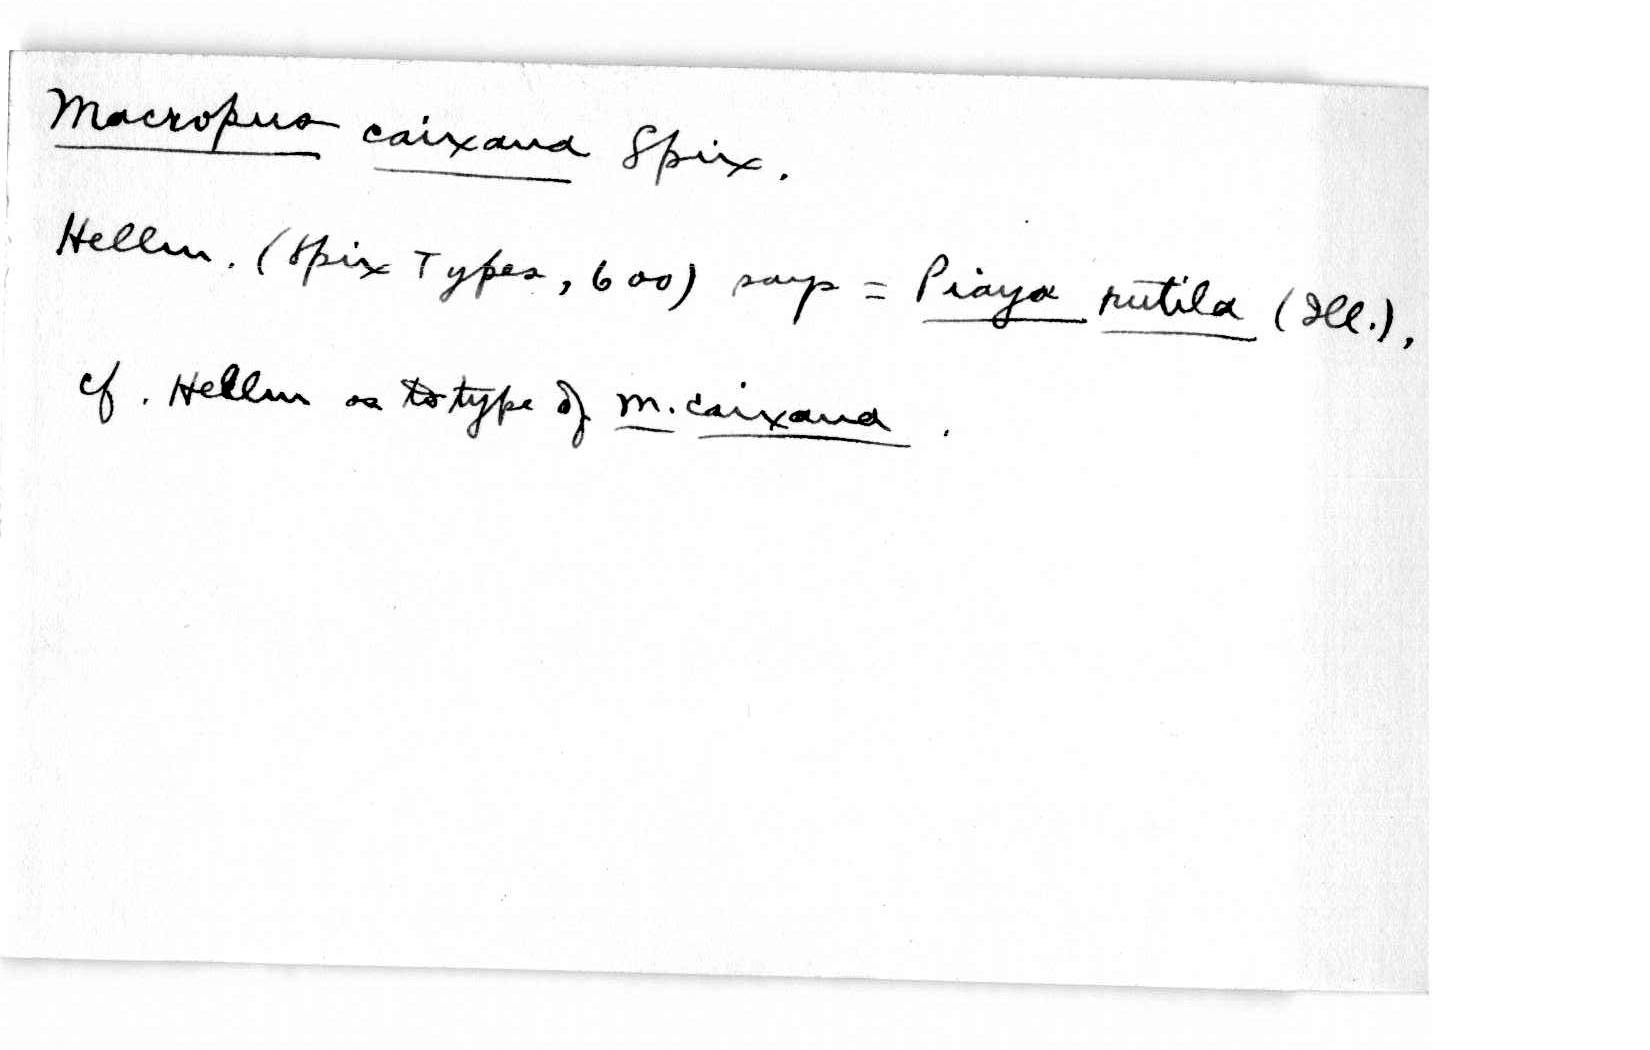 Macropus caixana Spix.
Hellm. (Spix Types, 600) says = Piaya rutila (Ill.),
cf. Hellm as to type of M. caixana.